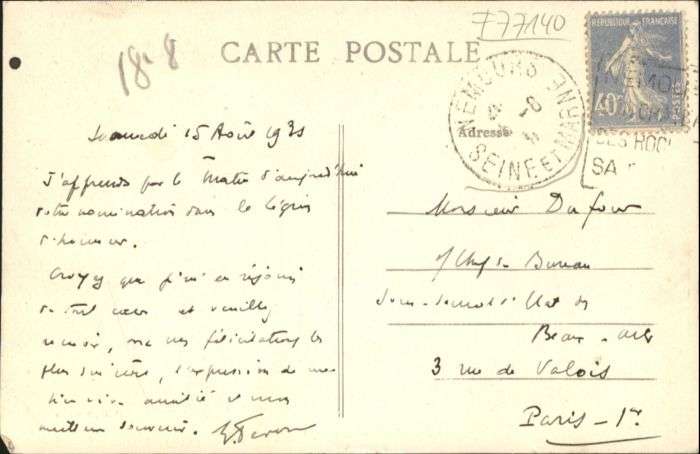 F77140
18-8
CARTE POSTALE
RÉPUBLIQUE FRANÇAISE
40c
POSTES
NEMOURS
SEINE ET MARNE
NEMO
DES ROC
SA
Adresse
Samedi 15 Août 1931
J'apprends par le Matin d'aujourd'hui
votre nomination dans la Légion
d'honneur.
Croyez que j'm'en réjouis
de tout cœur et veuillez
recevoir, avec mes félicitations les
plus sincères, l'expression de mon
amitié et mon
meilleur souvenir.
Monsieur Dufour
s/Chef de Bureau
Sous-Secrét d'Etat des
Beaux-Arts
3 rue de Valois
Paris-1er